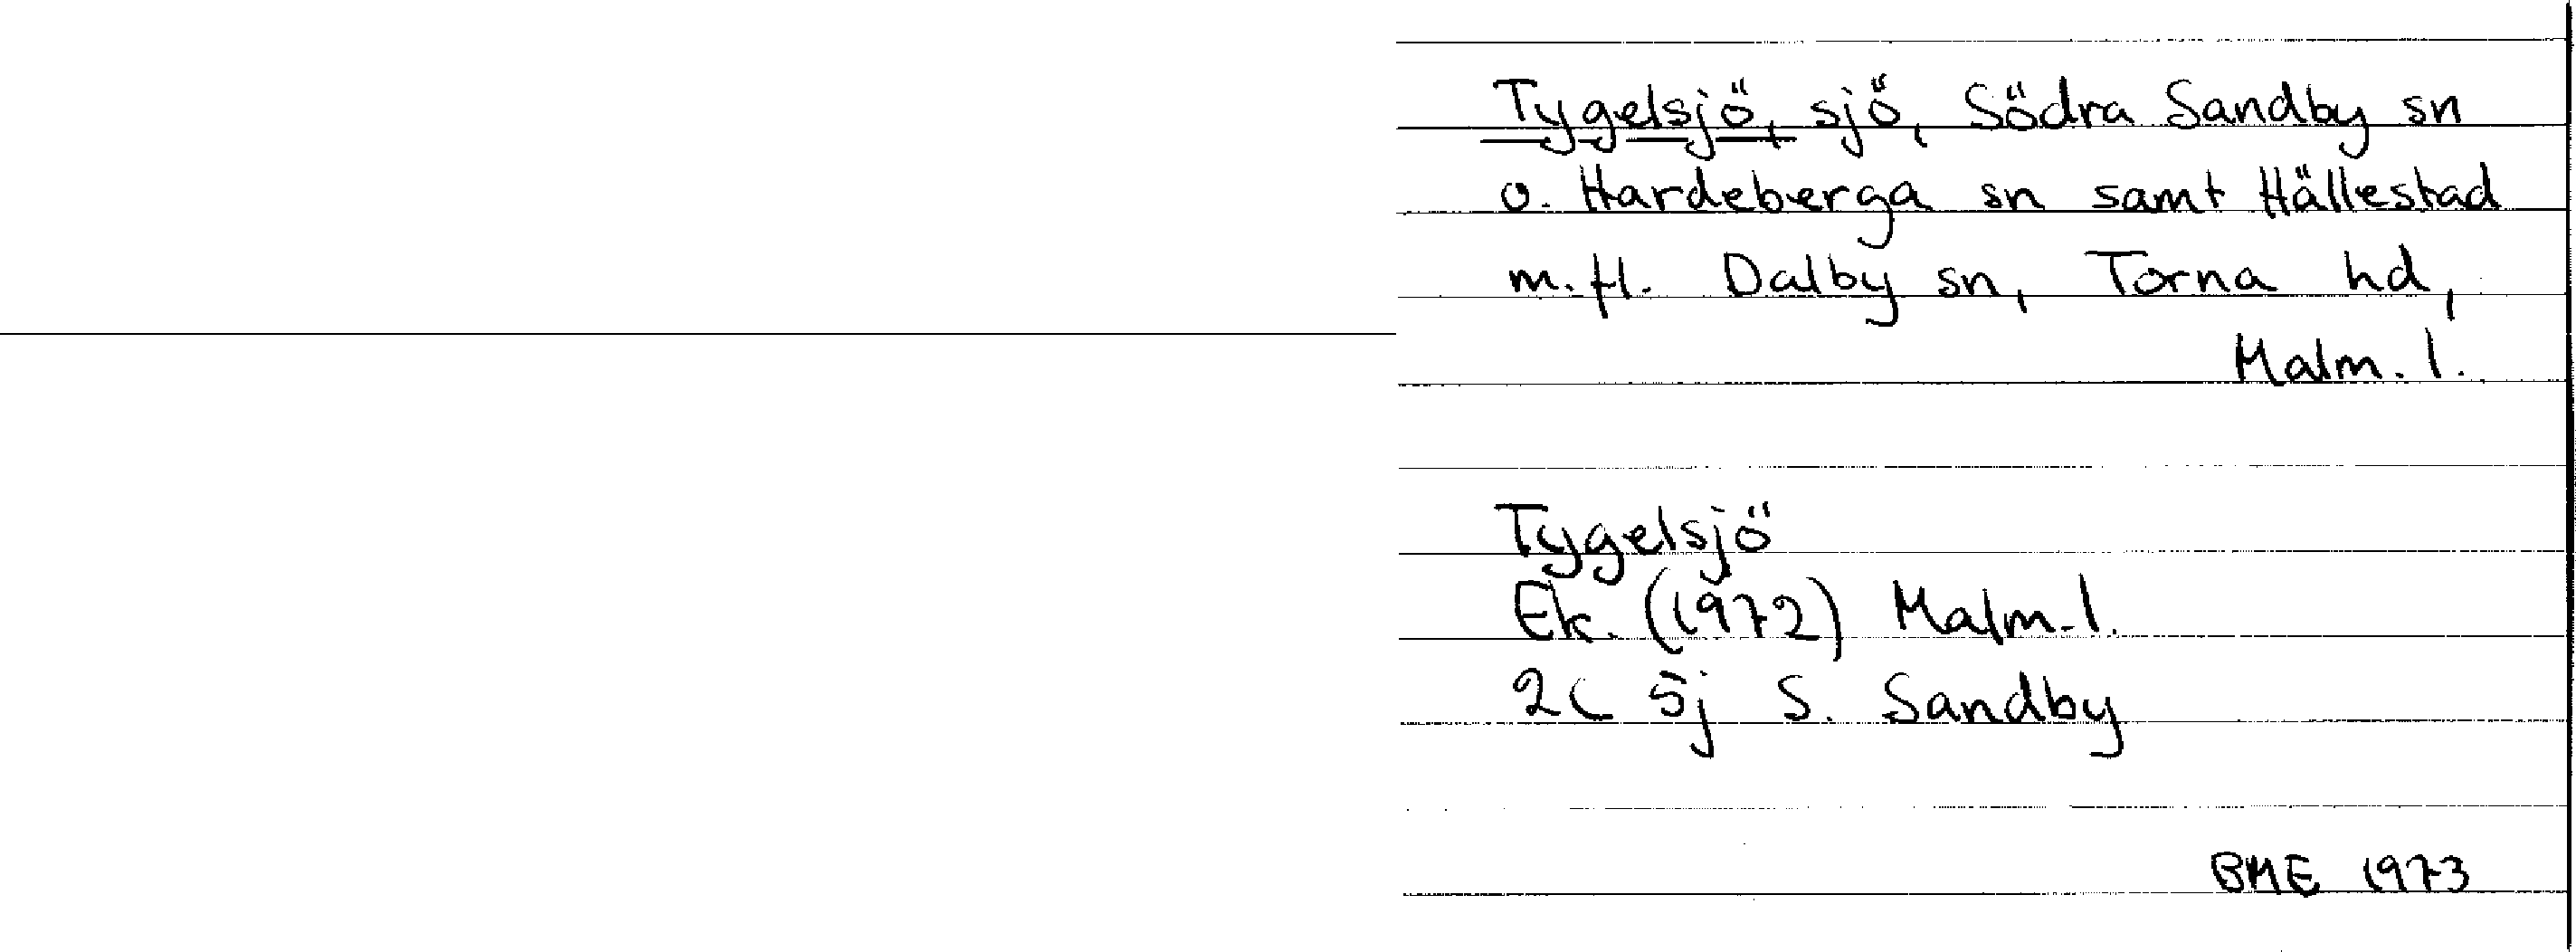 Tygelsjö, sjö, Södra Sandby sn
o. Hardeberga sn samt Hällestad
m.fl. Dalby sn, Torna hd,
Malm. l.
Tygelsjö
Ek. (1972) Malm. l.
2C 5j S. Sandby
BME 1973